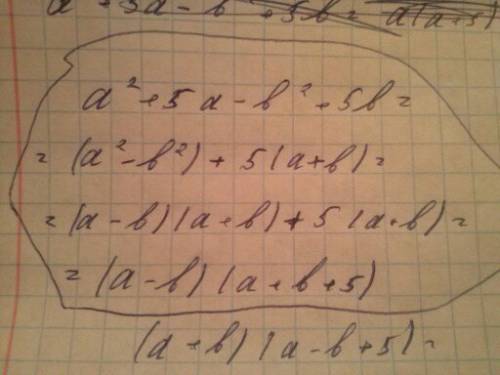 a² + 5a - b² + 5b =
= (a² - b²) + 5(a+b) =
= (a-b)(a+b) + 5(a+b) =
= (a-b)(a+b+5)
(a+b)(a-b+5) =